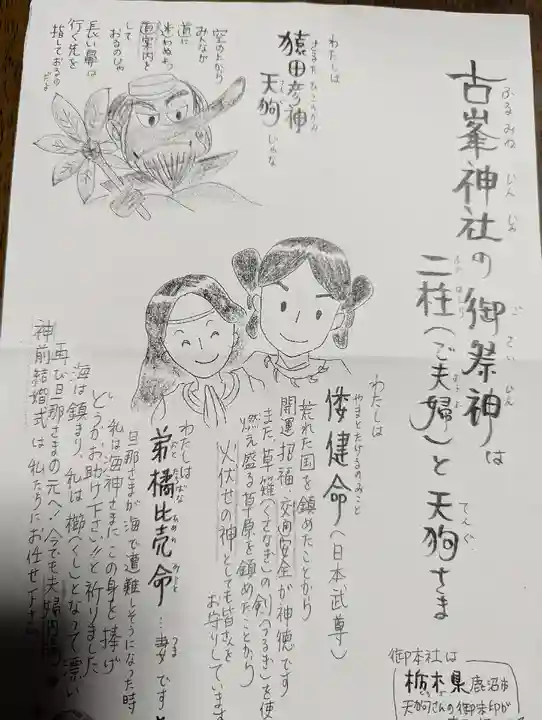 古峯神社の御祭神は
ふるみねじんじゃ
二柱(ご夫婦)と天狗さま
てんぐ
わたしは
さるたひこのかみ
猿田彦神
天狗じゃな
てんぐ
空の上から
みんなが
道に
迷わぬよう
道案内を
して
おるのじゃ
長い鼻は
行く先を
指しておるのだよ
わたしは
倭健命(日本武尊)
やまとたけるのみこと
荒れた国を鎮めたことから
開運招福・交通安全が神徳です
また草薙(くさなぎ)の剣(つるぎ)を使
燃え盛る草原を鎮めたことから
火伏せの神としても皆さまを
お守りしています
わたしは
弟橘比売命…妻です
つま
旦那さまが海で遭難しそうになった時
私は海神さまにこの身を捧げ
どうかお助け下さい!!と祈りました
海は鎮まり、私は櫛(くし)となって漂い
再び旦那さまの元へ!今でも夫婦
神前結婚式は私たちにお任せ下さい
御本社は
栃木県鹿沼市
天狗さんの御朱印が